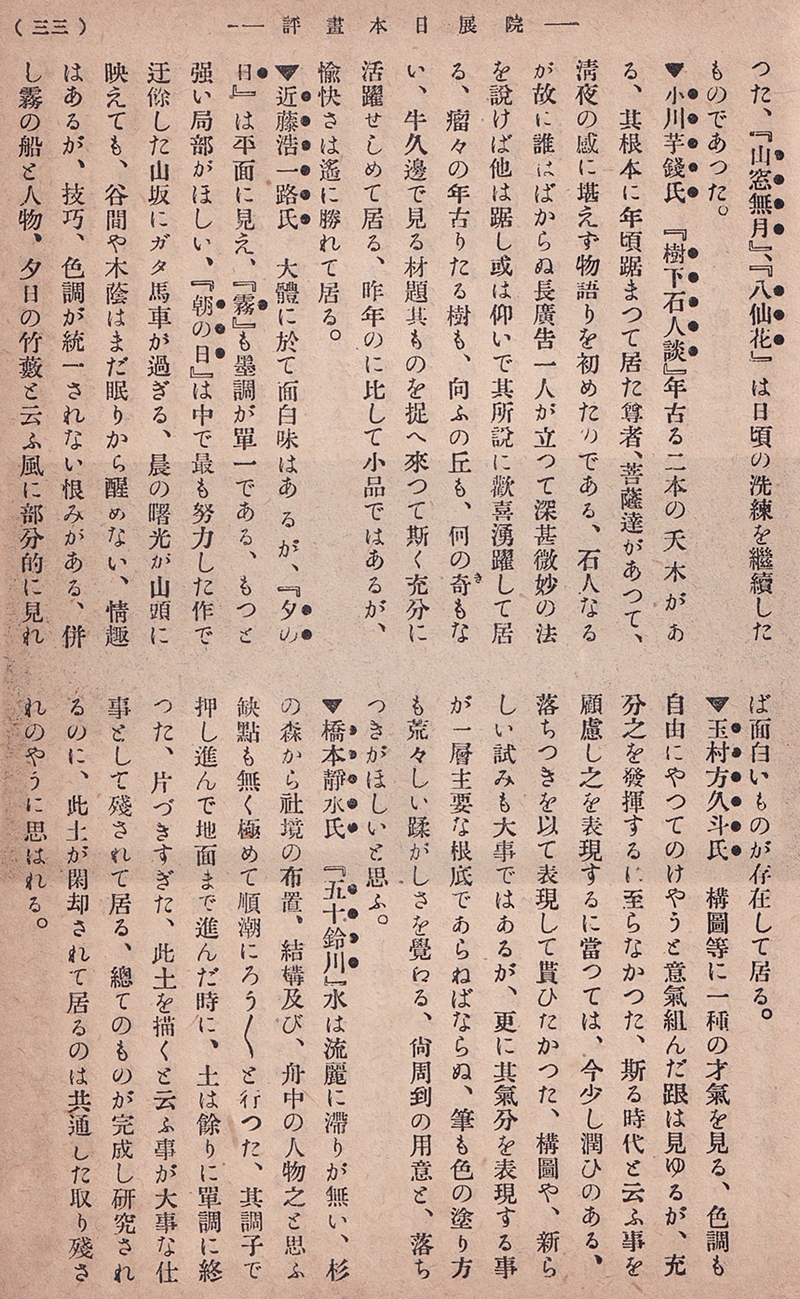 (三三)
──評畫本日展院──
つた、『山窓無月』、『八仙花』は日頃の洗練を繼續した
ものであつた。
▼小川芋錢氏 『樹下石人談』年古る二本の夭木があ
る、其根本に年頃踞まつて居た尊者、菩薩達があつて、
淸夜の感に堪えず物語りを初めたのである、石人なる
が故に誰はばからぬ長廣告一人が立つて深甚微妙の法
を說けば他は踞し或は仰いで其所說に歡喜湧躍して居
る、瘤々の年古りたる樹も、向ふの丘も、何の奇きもな
い、牛久邊で見る材題其ものを捉へ來つて斯く充分に
活躍せしめて居る、昨年のに比して小品ではあるが、
愉快さは遙に勝れて居る。
▼近藤浩一路氏 大體に於て面白味はあるが、『夕の
日』は平面に見え、『霧』も墨調が單一である、もつと
强い局部がほしい、『朝の日』は中で最も努力した作で
迂餘した山坂にガタ馬車が過ぎる、晨の曙光が山頭に
映えても、谷間や木蔭はまだ眠りから醒めない、情趣
はあるが、技巧、色調が統一されない恨みがある、併
し霧の船と人物、夕日の竹藪と云ふ風に部分的に見れ
ば面白いものが存在して居る。
▼玉村方久斗氏 構圖等に一種の才氣を見る、色調も
自由にやつてのけやうと意氣組んだ跟は見ゆるが、充
分之を發揮するに至らなかつた、斯る時代と云ふ事を
顧慮し之を表現するに當つては、今少し潤ひのある、
落ちつきを以て表現して貰ひたかつた、構圖や、新ら
しい試みも大事ではあるが、更に其氣分を表現する事
が一層主要な根底であらねばならぬ、筆も色の塗り方
も荒々しい蹂がしさを覺わる、尙周到の用意と、落ち
つきがほしいと思ふ。
▼橋本靜水氏 『五十鈴川』水は流麗に滯りが無い、杉
の森から社境の布置、結構及び、舟中の人物之と思ふ
缺點も無く極めて順潮にろう〱と行つた、其調子で
押し進んで地面まで進んだ時に、土は餘りに單調に終
つた、片づきすぎた、此土を描くと云ふ事が大事な仕
事として殘されて居る、總てのものが完成し硏究され
るのに、此土が閑却されて居るのは共通した取り殘さ
れのやうに思はれる。